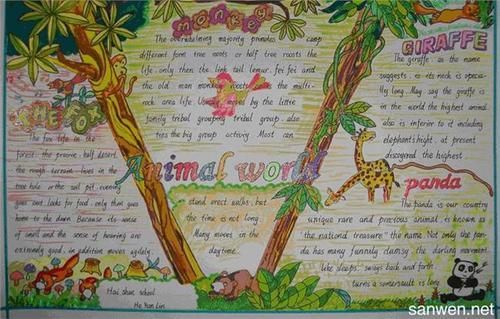 monkey
The overwhelming majority promotes camp
different form tree roots or half tree roosts the
life. only then the link tail lemur. fei fei and
the old man monkey roosts the multi-
rock area life. Usually moved by the little
family tribal grouping tribal group also
ties the big group activiy Most can
Animal world
stand erect walks, but
the time is not long.
Many moves in the
daytime.
THE FOX
The fox life in the
forest. the prairie. half desert.
the rough terrain. lives in the
tree hole or the soil pit. evening
goes out looks for food. only then goes
home to the dawn. Because its sense
of smell and the sense of hearing are
extremely good. in addition moves agilely.
Hai shan school
He Yun Lin
GIRAFFE
The giraffe. as the name
suggests. is its neck is specia-
lly long. May say the giraffe is
in the world the highest animal.
also is inferior to it including
elephant's hight. at present
discovered the highest.
panda
The panda is our country
unique rare and precious animal, is known as
"the national treasure" the name. Not only the pan-
da has many funnily clumsy. the darling movement.
like sleeps. sways back and forth.
turns a somersault is long
sanwen.net